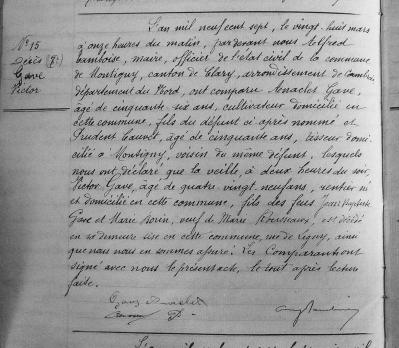 N° 15
Décès
Gave
Victor
L'an mil neuf cent sept, le vingt huit mars
à onze heures du matin, par devant nous Alfred
Ramboise, maire, officier de l'état civil de la commune
de Montigny, canton de Clary, arrondissement de Cambrai
département du Nord, ont comparu Anaclet Gave,
âgé de cinquante six ans, cultivateur domicilié en
cette commune, fils du défunt ci après nommé et
Prudent Cauvet, âgé de cinquante ans, tisseur domi-
cilié à Montigny, voisin du même défunt, lesquels
nous ont déclaré que la veille, à deux heures du soir,
Victor Gave, âgé de quatre-vingt neuf ans, rentier né
et domicilié en cette commune, fils des feus Jean Baptiste
Gave et Marie, veuf de Marie, est décédé
en sa demeure sise en cette commune, rue de Ligny, ainsi
que nous nous en sommes assuré. Les Comparants ont
signé avec nous le présent acte, le tout après lecture
faite.
Gave Anaclet